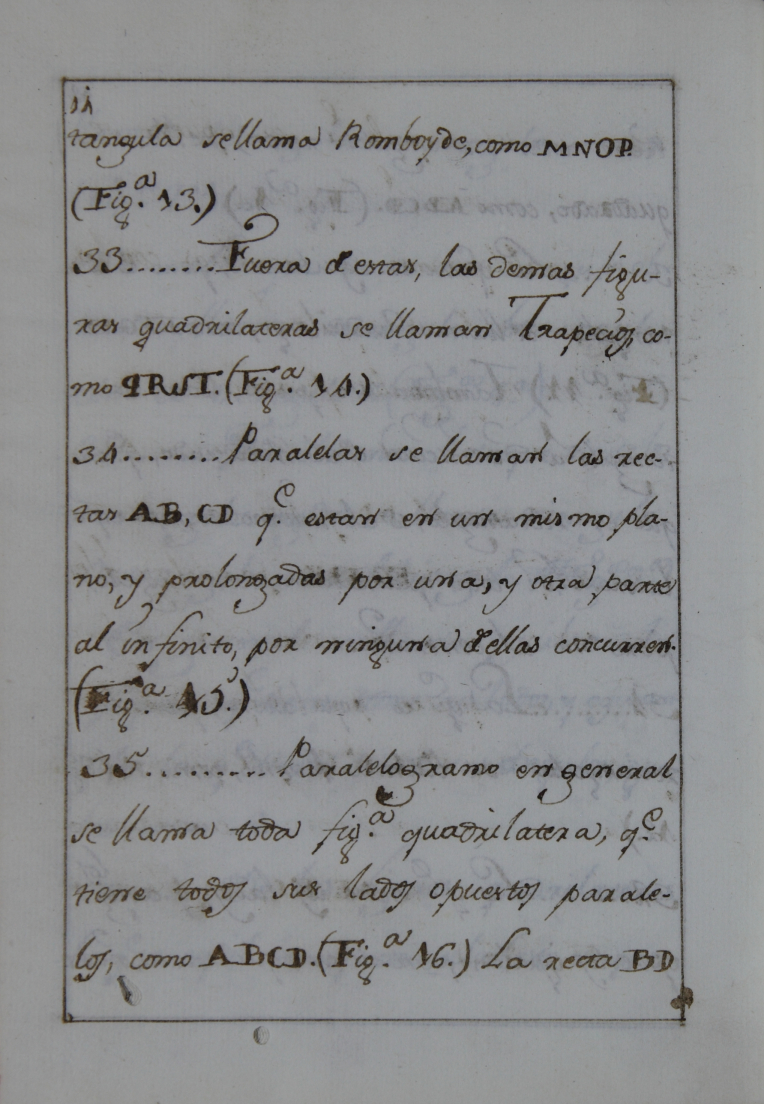 11
tangula se llama Romboyde, como MNOP.
(Fig.ª 13.)
33........Fuera de estas, las demas figu-
ras quadrilateras se llaman Trapecios, co-
mo QRST. (Fig.ª 14.)
34........Paralelas se llaman las rec-
tas AB, CD q.e estan en un mismo pla-
no, y prolongadas por una, y otra parte
al infinito, por ninguna de ellas concurren.
(Fig.ª 15.)
35.........Paralelogramo en general
se llama toda fig.ª quadrilatera, q.e
tiene todos sus lados opuestos parale-
los, como ABCD. (Fig.ª 16.) La recta BD